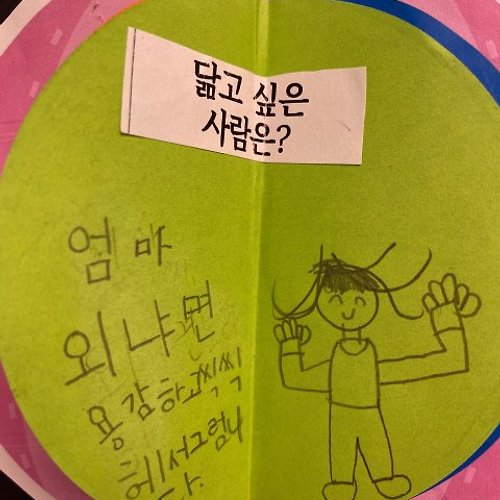 닮고 싶은
사람은?
엄마
외냐면
용감하고씩씩
헤서그럼니
다.